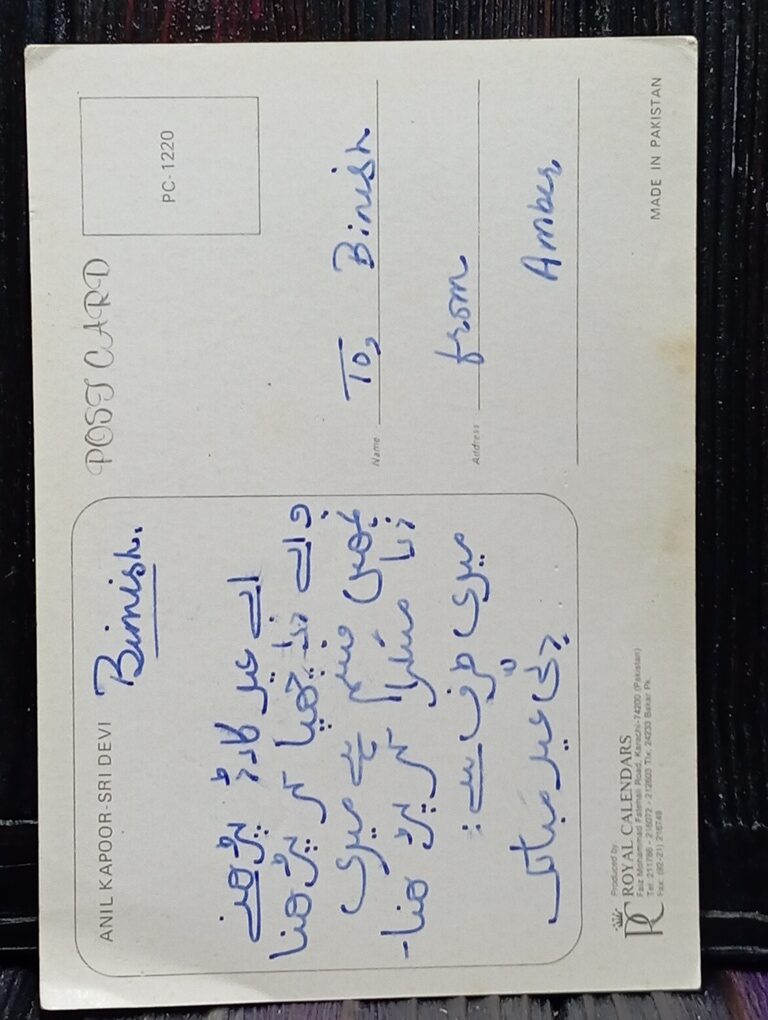 ANIL KAPOOR-SRI DEVI
Binish.
اے عید کارڈ پڑھنے
والے ذرا چھپا کر پڑھنا
تمہیں قسم ہے میری
ذرا مسکرا کر پڑھنا۔
میری طرف سے:
عید مبارک
POST CARD
PC-1220
Name
To, Binish
Address
from
Amber,
MADE IN PAKISTAN
Produced by
ROYAL CALENDARS
Faiz Mohammad Fatehali Road, Karachi-74200 (Pakistan)
Tel: 211786 - 216072 - 212603 Tlx. 24233 Bakar Pk.
Fax: (92-21) 216749